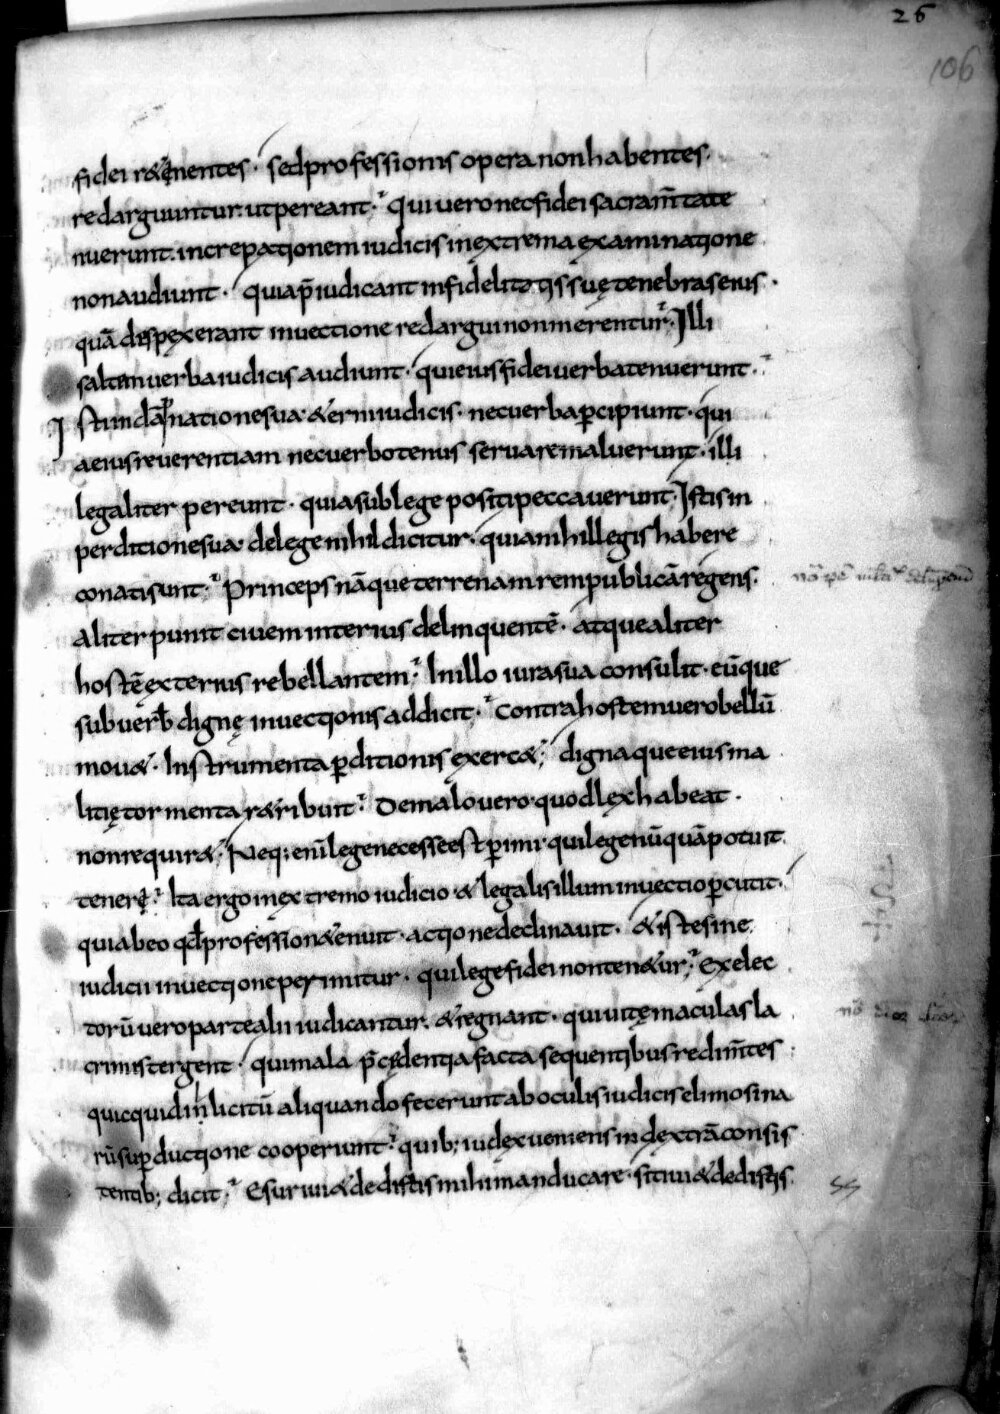 26
106
fidei r&ęnentes · sed professionis opera non habentes ·
redarguuntur. ut pereant · Qui uero nec fidei sacram̄ta te
nuerunt. increpationem iudicis in extrema examinatione
non audiunt · quia p̄iudicati infidelitatis suę tenebras eius ·
quā dispexerant inuectione redargui non merentur · Illi
saltim uerba iudicis audiunt · qui eius fidei uerba tenuerunt ·
Isti in dāpnatione sua &erni iudicis · nec uerba p̄cipiunt · qui
a eius reuerentiam nec uerbo tenus seruare maluerunt · illi
legaliter pereunt · quia sub lege positi peccauerunt · Istis in
perditione sua de lege nihil dicitur · quia nihil legis habere
conati sunt · Princeps nāque terrenam rempublicā regens ·
aliter punit ciuem interius delinquentē · atque aliter
hostē exterius rebellantem · In illo iura sua consulit · eūque
sub uerb̄ dignę inuectionis addicit · Contra hostem uero bellū
mou& · Instrumenta p̄ditionis exerc& · dignaque eius ma
litię tormenta r&ribuit · De malo uero quod lex habeat ·
non requir& · Neq; eni lege necesse est p̄imi · qui lege nūquā potuit
tenerę · Ita ergo in extremo iudicio & legalis illum inuectio p̄cutit ·
quia b eo qđ professione &enuit · actione declinauit · & iste sine
iudicii inuectione perimitur · qui lege fidei non ten&ur · Ex elec
torū uero parte alii iudicantur. & regnant · qui uitę maculas la
crimis tergent · qui mala p̄cędentia facta sequentibus redim̄tes
quicquid inlicitū aliquando fecerunt ab oculis iudicis elimosina
rū sup̄ductione cooperiunt · quib; iudex ueniens in dextrā consis
tentib; dicit · Esuriui & dedistis mihi manducare · sitiui & dedistis